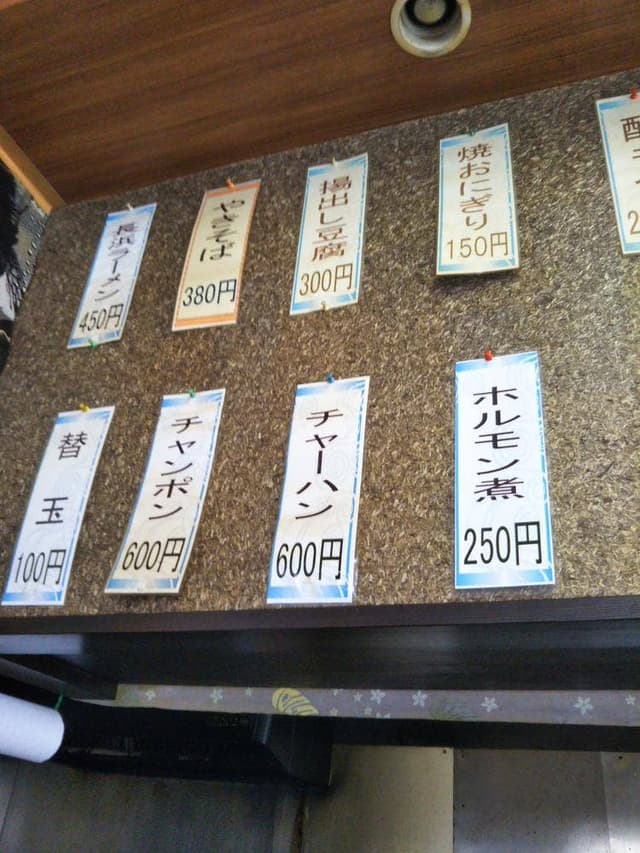 長浜ラーメン
450円
やきそば
380円
揚出し豆腐
300円
焼おにぎり
150円
替玉
100円
チャンポン
600円
チャーハン
600円
ホルモン煮
250円